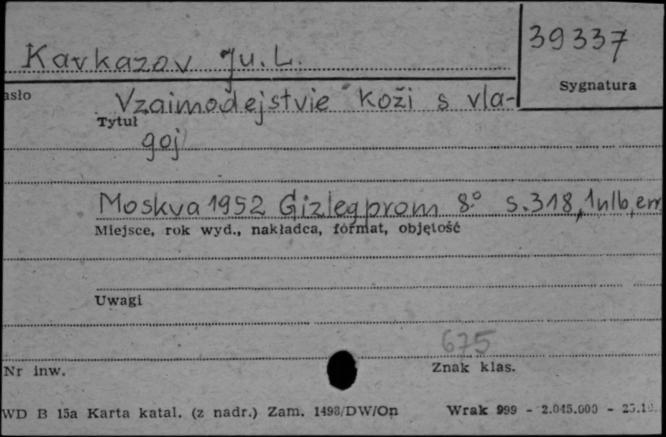 39337
Kavkazov Ju. L.
Sygnatura
asło
Vzaimodejstvie koži s vla-
Tytuł
goj
Moskva 1952 Gizlegprom 8° s.318, 1nlb, err
Miejsce, rok wyd., nakładca, format, objętość
Uwagi
675
Nr inw.
Znak klas.
WD B 15a Karta katal. (z nadr.) Zam. 1498/DW/Op
Wrak 999 - 2.045.000 -